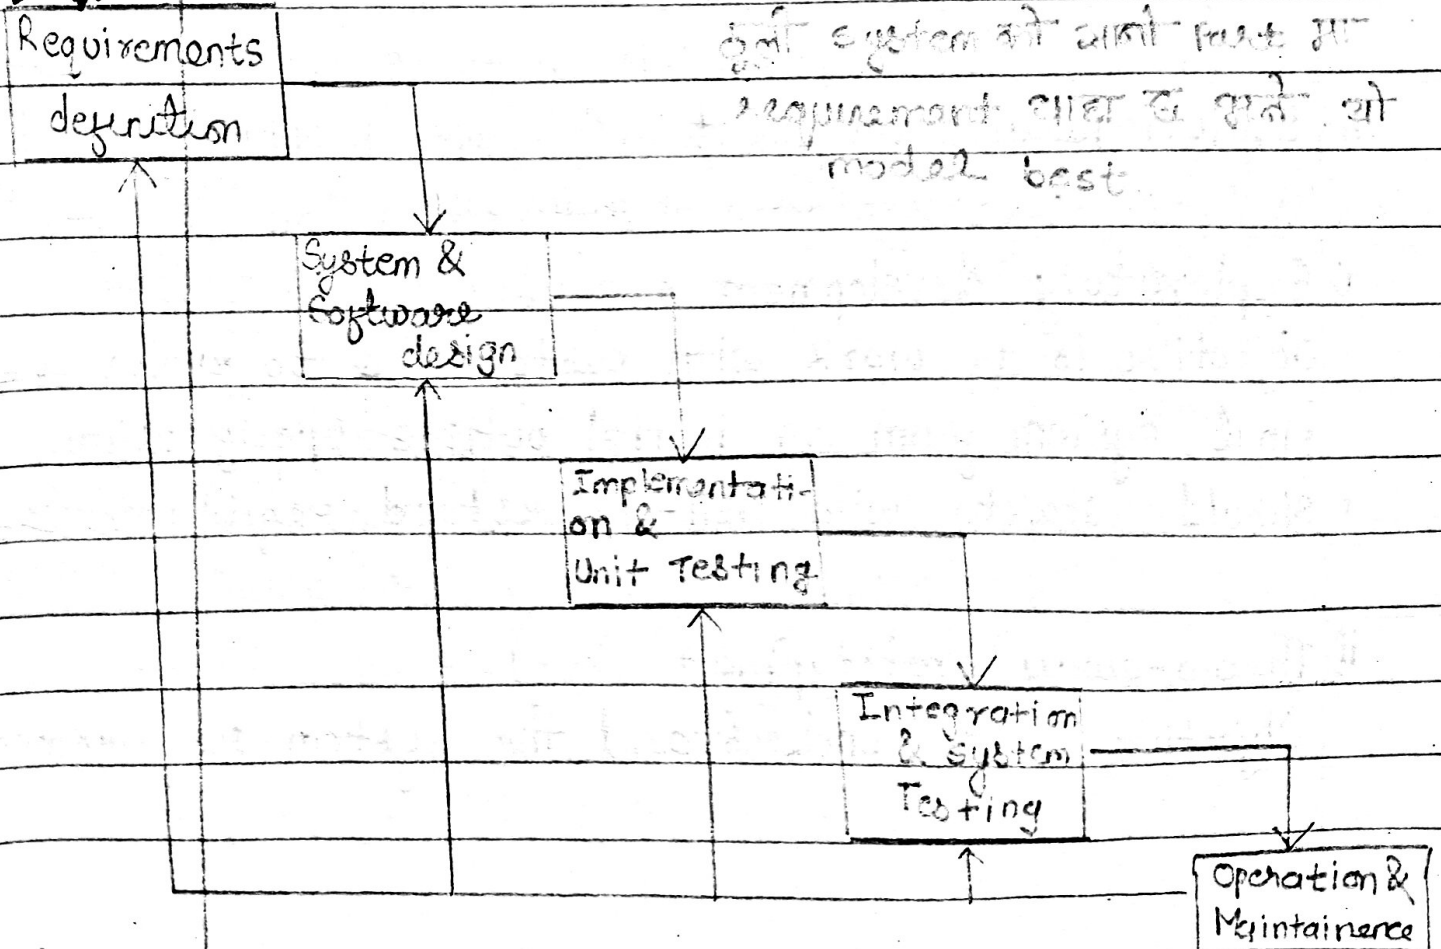 Requirements
definition
system को
requirement थाहा छ भने यो
model best
System &
Software
design
Implementati-
on &
Unit Testing
Integration
& System
Testing
Operation &
Maintainence